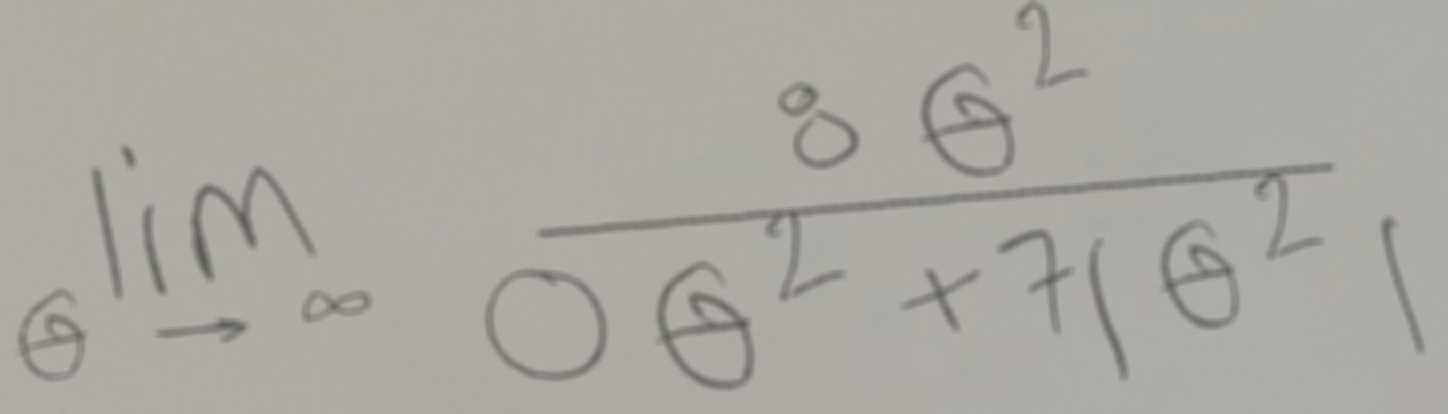 \lim_{\theta \to \infty} \frac{8\theta^2}{0\theta^2 + 7|\theta^2|}